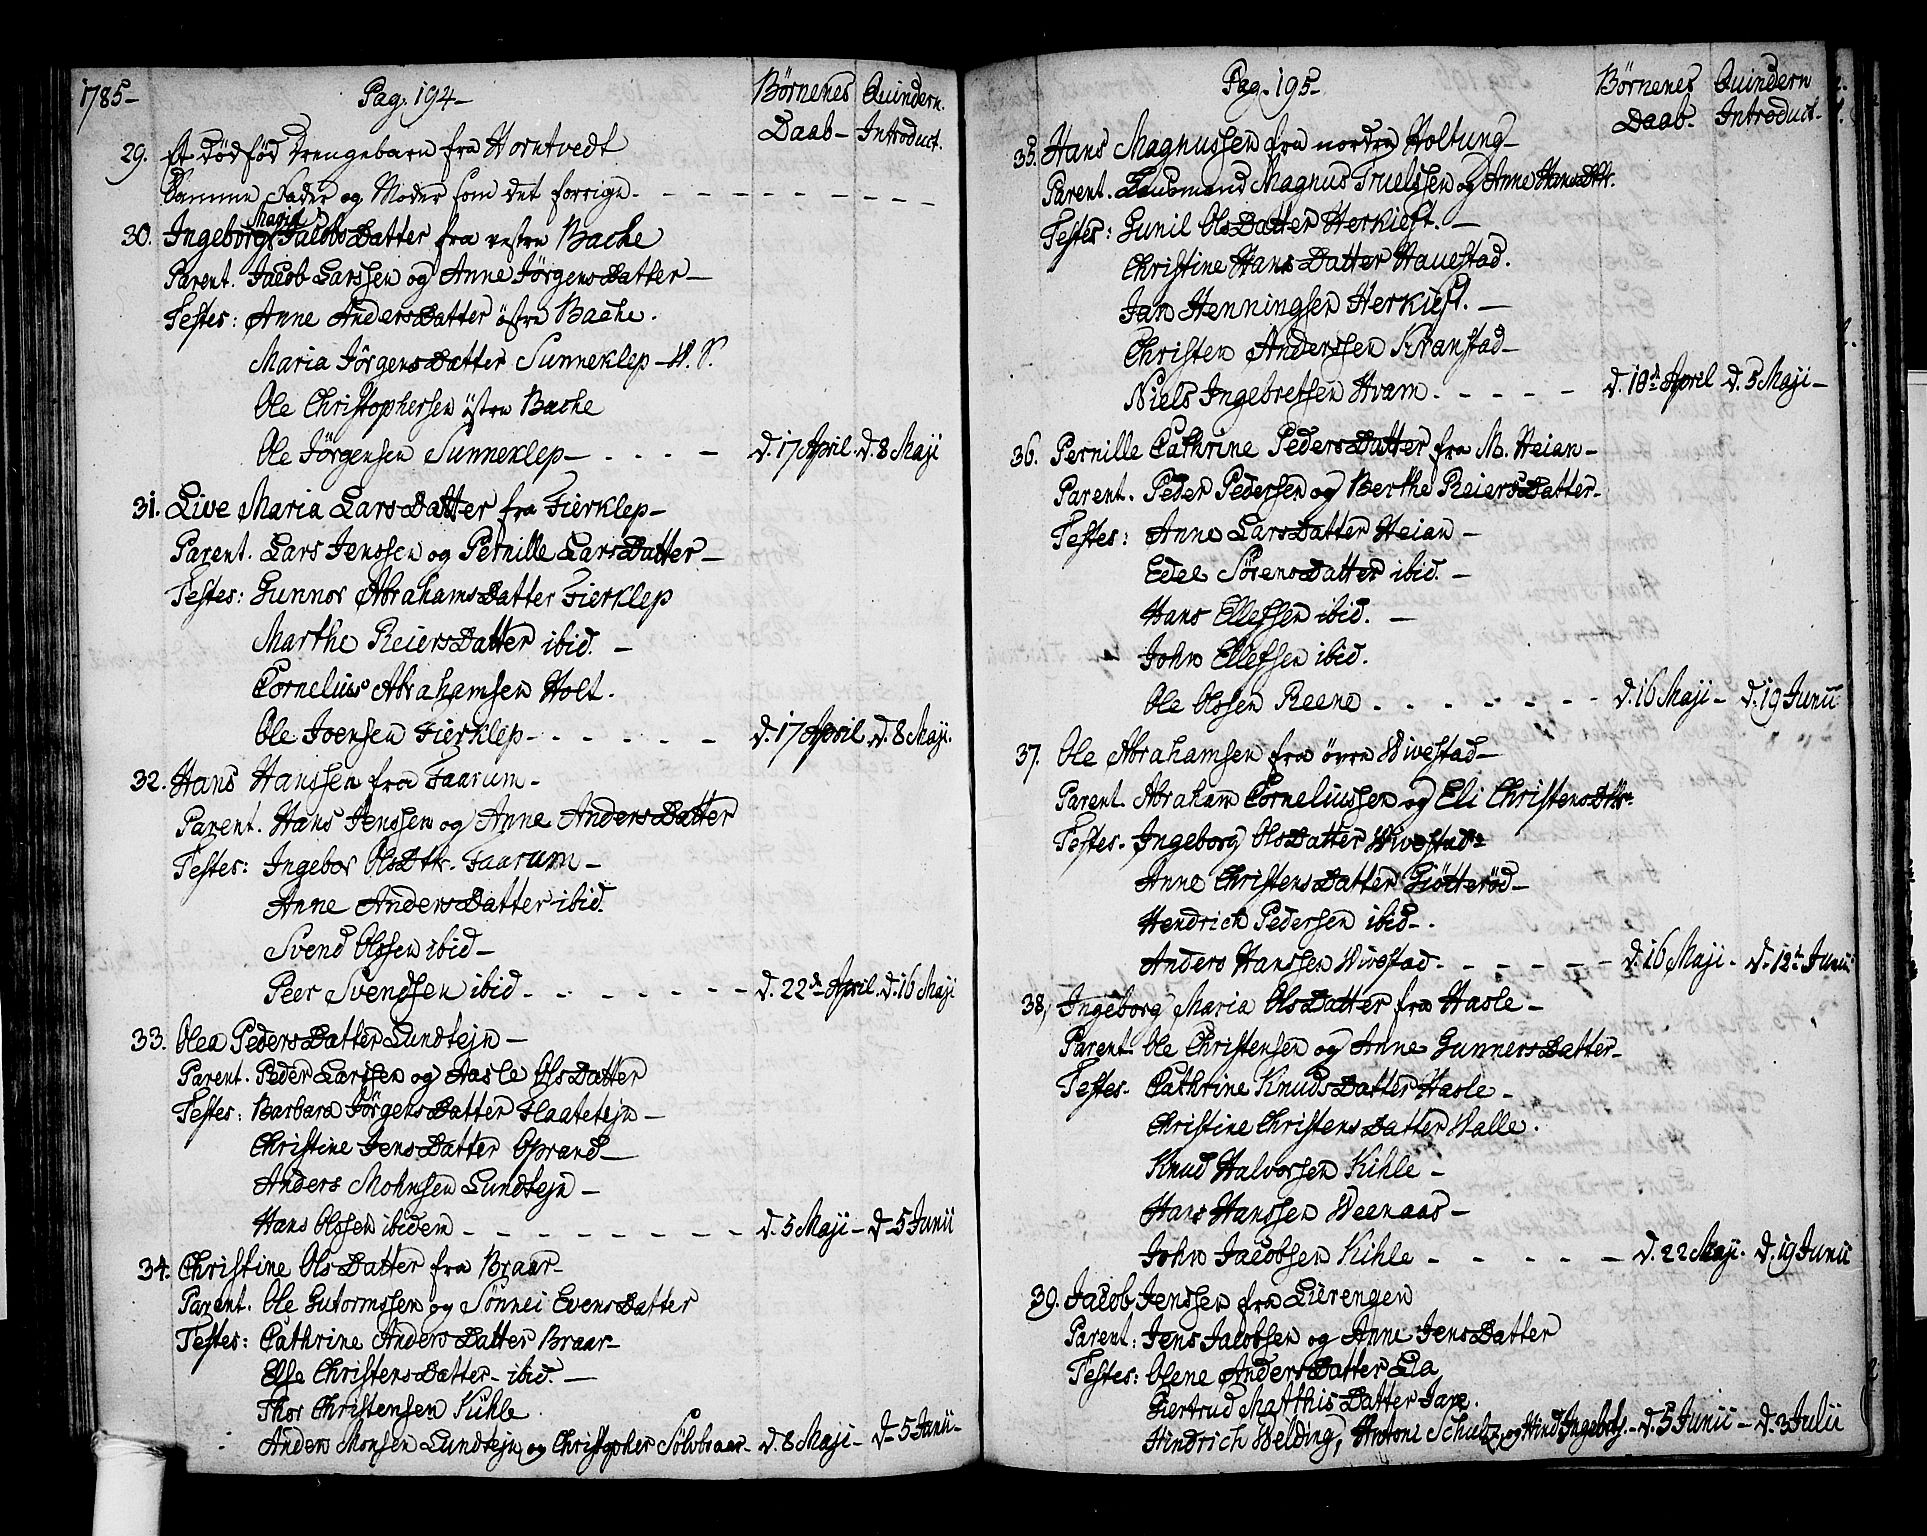 1785-
Pag. 194-
Børnenes Daab-
Quindern. Introduct.
29. Et dödfød drengebarn fra Horntvedt
Samme Fader og Moder som det forrige.
30. Ingeborg Maria Jacobs Datter fra vestre Bache
Parent. Jacob Larssen og Anne Jörgens Datter-
Testes: Anne Anders Datter östre Bache.
Maria Jörgens Datter Sunneklep
Ole Christophersen östre Bache
Ole Jörgensen Sunneklep- d. 17 April. d. 8 Maji
31. Live Maria Lars Datter fra Fierklep-
Parent. Lars Jenssen og Pernille Lars Datter-
Testes: Gunnor Abrahams Datter Fierklep
Marthe Reiers Datter ibid. -
Cornelius Abrahamsen Holt.
Ole Joensen Fierklep- d. 17 April. d. 8 Maji.
32. Hans Hanssen fra Faarum-
Parent. Hans Jenssen og Anne Anders Datter
Testes: Ingebor Ols Dtr. Faarum-
Anne Anders Datter ibid.
Svend Olssen ibid-
Peer Svendsen ibid. d. 22de April. d. 16 Maji
33. Olea Peders Datter Lundtejn-
Parent. Peder Larssen og Aasle Ols Datter
Testes: Barbara Jörgens Datter Flaatetejn-
Christine Jens Datter Oprand-
Anders Mohnsen Lundtejn-
Hans Olssen ibidem- d. 5 Maji- d. 5 Junii
34. Christine Ols Datter fra Braar-
Parent. Ole Gutormssen og Sönnei Evens Datter
Testes: Cathrine Anders Datter Braar-
Else Christens Datter- ibid.-
Thor Christensen Kihle.
Anders Monsen Lundtejn og Christopher Sölvbraar- d. 8 Maji- d. 5 Junii-
Pag. 195-
Børnenes Daab-
Quindern Introduct.
35. Hans Magnussen fra nordre Holtung-
Parent. Landsmand Magnus Truelssen og Anne Hans Dtr.
Testes: Gunil Ols Datter Herkiest. -
Christine Hans Datter Hauestad.
Jan Henningsen Herkiest. -
Christen Anderssen Kranstad-
Niels Ingebretsen Hvam. d. 18de April d. 5 Maji-
36. Pernille Cathrine Peders Datter fra M. Heian-
Parent. Peder Pedersen og Berthe Reiers Datter-
Testes: Anne Lars Datter Heian-
Edel Sörens Datter ibid. -
Hans Ellefsen ibid. -
John Ellefsen ibid.
Ole Olssen Reene. d. 16 Maji- d. 19 Junii
37. Ole Abrahamsen fra övre Wivestad-
Parent. Abraham Corneliussen og Eli Christens Dtr.
Testes. Ingeborg Ols Datter Wivestad-
Anne Christens Datter Giötteröd-
Hendrich Pedersen ibid-.
Anders Hanssen Wivestad. d. 16 Maji. d. 12te Junii
38, Ingeborg Maria Ols Datter fra Hasle-
Parent. Ole Christensen og Anne Gunners Datter-
Testes. Cathrine Knuds Datter Hasle-
Christine Christens Datter Walle.
Knud Halvorsen Kihle-
Hans Hanssen Weenaas-
John Jacobsen Kihle- d. 22 Maji. d. 19 Junii
39. Jacob Jenssen fra Lierengen
Parent: Jens Jacobsen og Anne Jens Datter
Testes: Olene Anders Datter Lia
Giertrud Matthis Datter Jare.
Hindrich Welding, Antoni Schultz, og Hind Ingebrts.- d. 5 Junii- d. 3 Julii